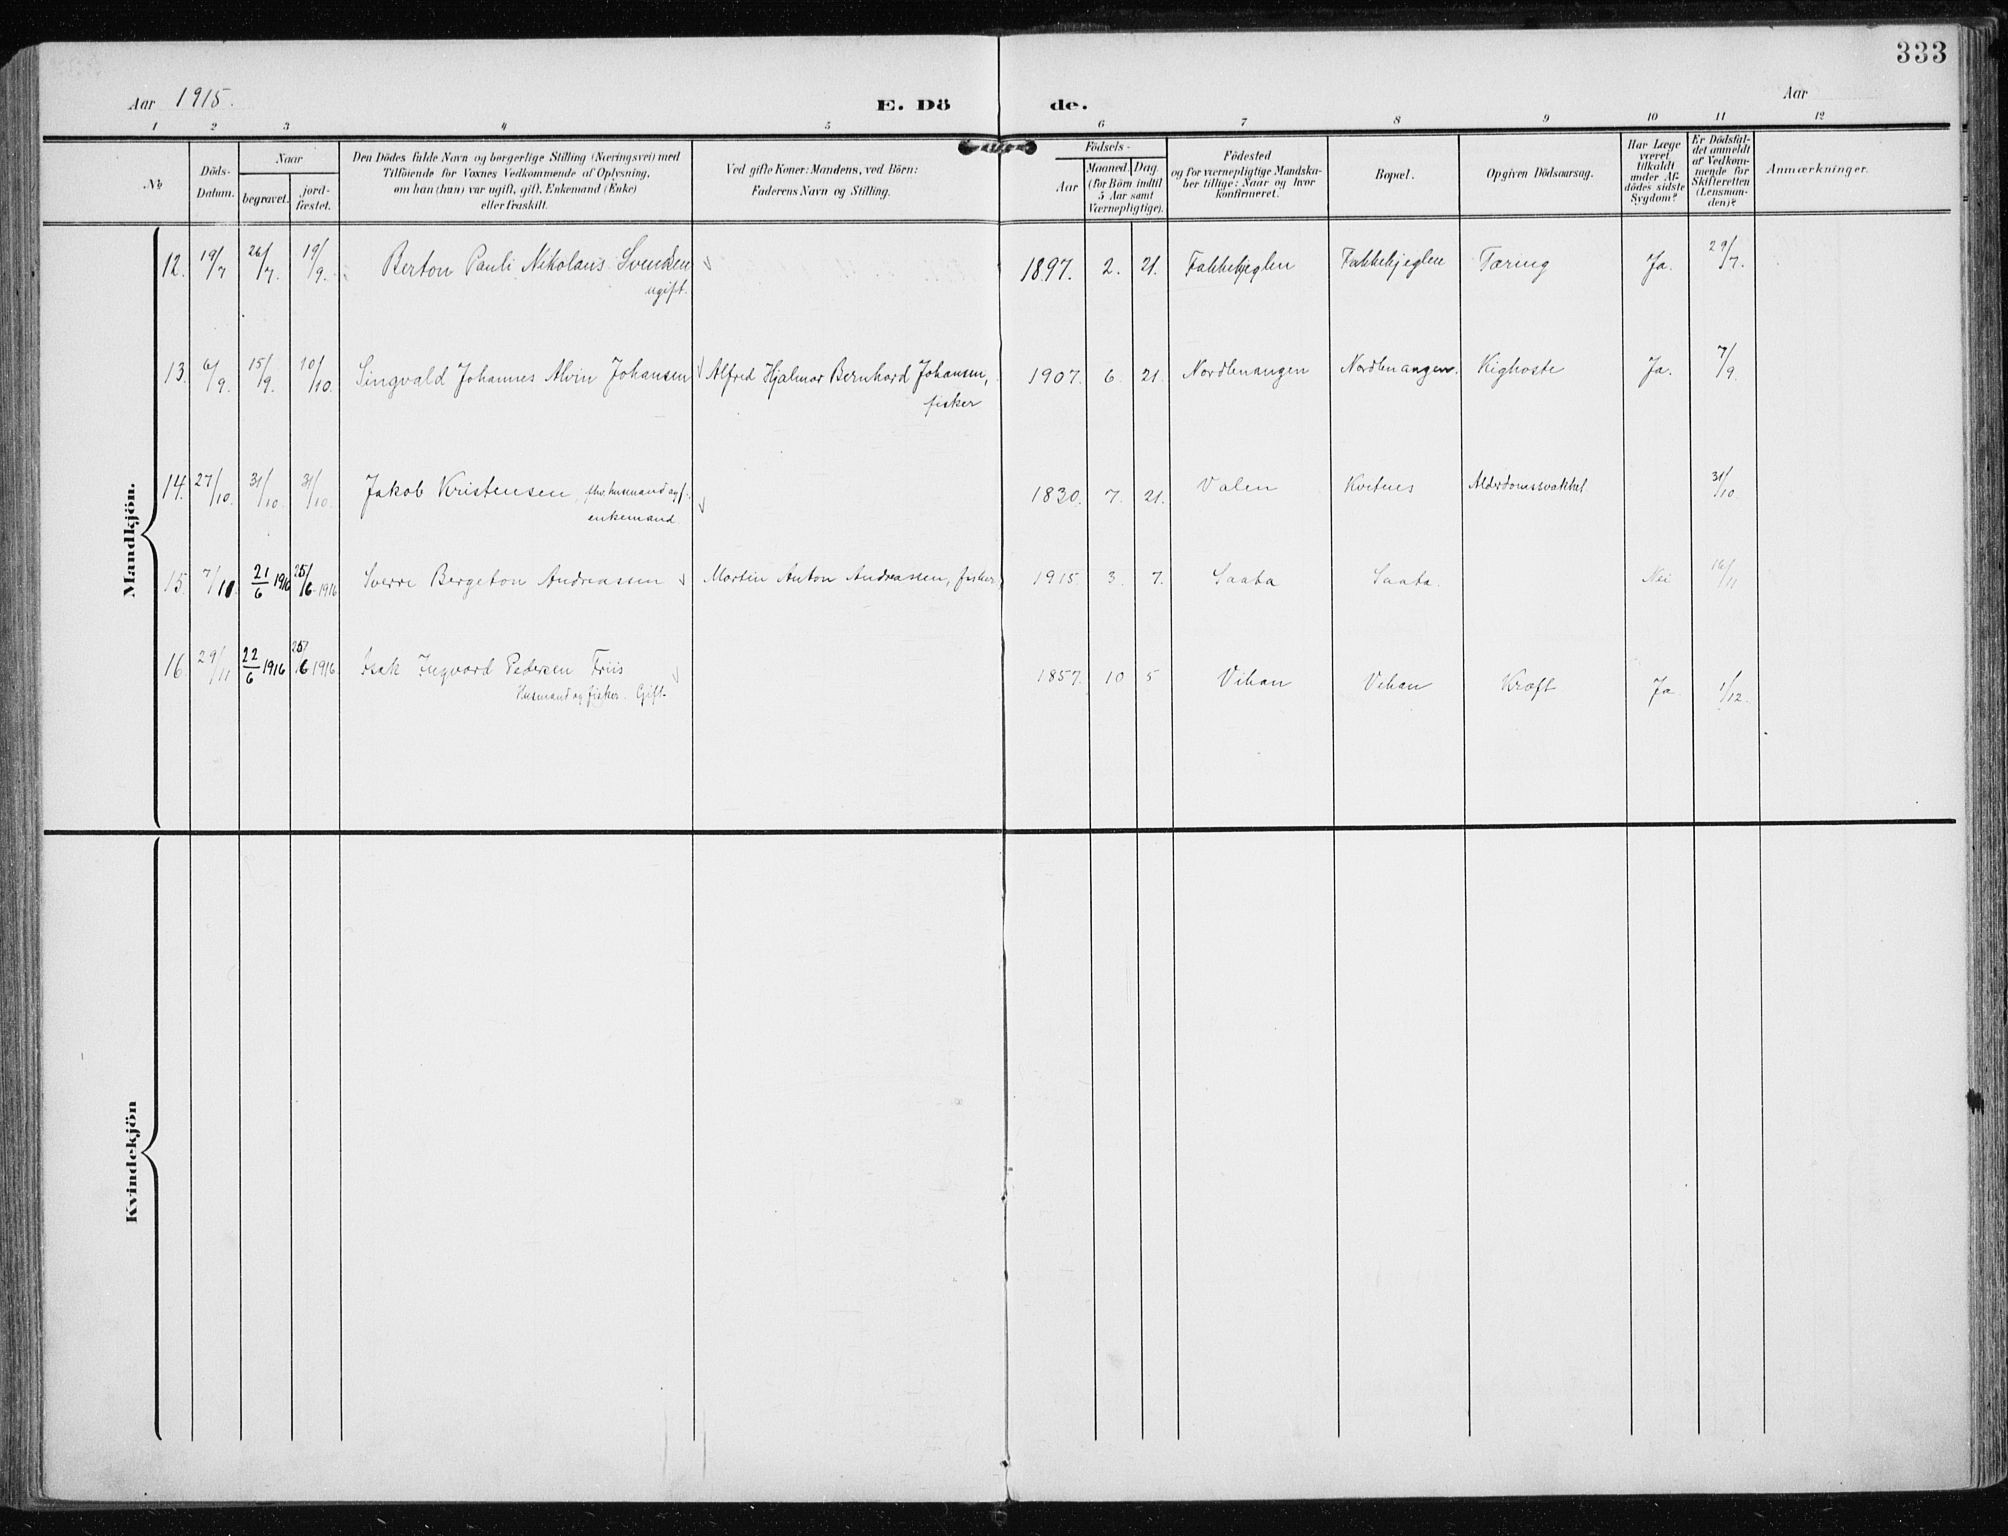 333
Aar 1915.
E. Dö de.
Aar
1 2 3 4 5 6 7 8 9 10 11 12
No.
Döds-
Datum.
Naar
begravet.
jord-
fæstet.
Den Dödes fulde Navn og borgerlige Stilling (Næringsvei) med
Tilföiende for Voxnes Vedkommende af Oplysning,
om han (hun) var ugift, gift, Enkemand (Enke)
eller fraskilt.
Ved gifte Koner: Mandens, ved Börn:
Faderens Navn og Stilling.
Födsels-
Aar
Maaned. Dag.
(for Börn indtil
5 Aar samt
Værnepligtige).
Födested
og for værnepligtige Mandska-
ber tillige: Naar og hvor
konfirmeret.
Bopæl.
Opgiven Dödsaarsag.
Har Læge
været
tilkaldt
under Af-
dödes sidste
Sygdom?
Er Dödsfal-
det anmeldt
af Vedkom-
mende for
Skifteretten
(Lensman-
den)?
Anmærkninger.
Mandkjön.
12. 19/7 26/7. 19/9. Berton Pauli Nikolaus Svendsen 1897. 2. 21. Fakkekjeglen Fakkekjeglen Tæring Ja. 29/7.
ugift.
13. 6/9. 15/9. 10/10. Singvald Johannes Alvin Johansen Alfred Hjalmar Bernhard Johansen, 1907. 6. 21. Nordlenangen Nordlenangen. Kighoste Ja. 7/9.
fisker
14. 27/10. 31/10. 31/10. Jakob Kristensen, 1830. 7. 21. Valen Kvitnes Alderdomssvakhet 31/10.
enkemand
15. 7/11. 21/6 1916 25/6 1916 Sverre Bergeton Andreassen Martin Anton Andreassen, fisker 1915 3. 7. Nei 16/11
16. 29/11 22/6 1916 25/6 1916 Isak Ingvard Pedersen Friis 1857. 10 5 Kræft Ja 1/12.
Husmand og fisker. Gift.
Kvindekjön